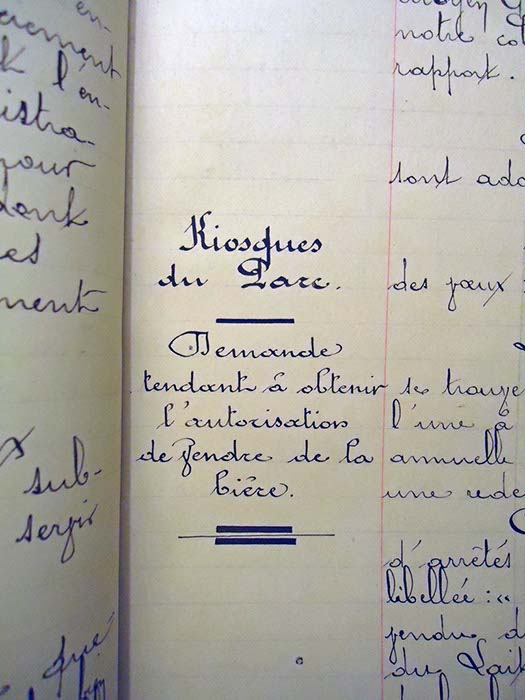 en-
l'en-
istra-
pour
dont
es
ment
sub-
servir
que
Kiosques
du Parc.
Demande
tendant à obtenir
l'autorisation
de vendre de la
bière.
notre
rapport.
sont
des vœux
se trouve
l'une à
annuelle
une
d'arrêtés
libellée : «
vendre
du